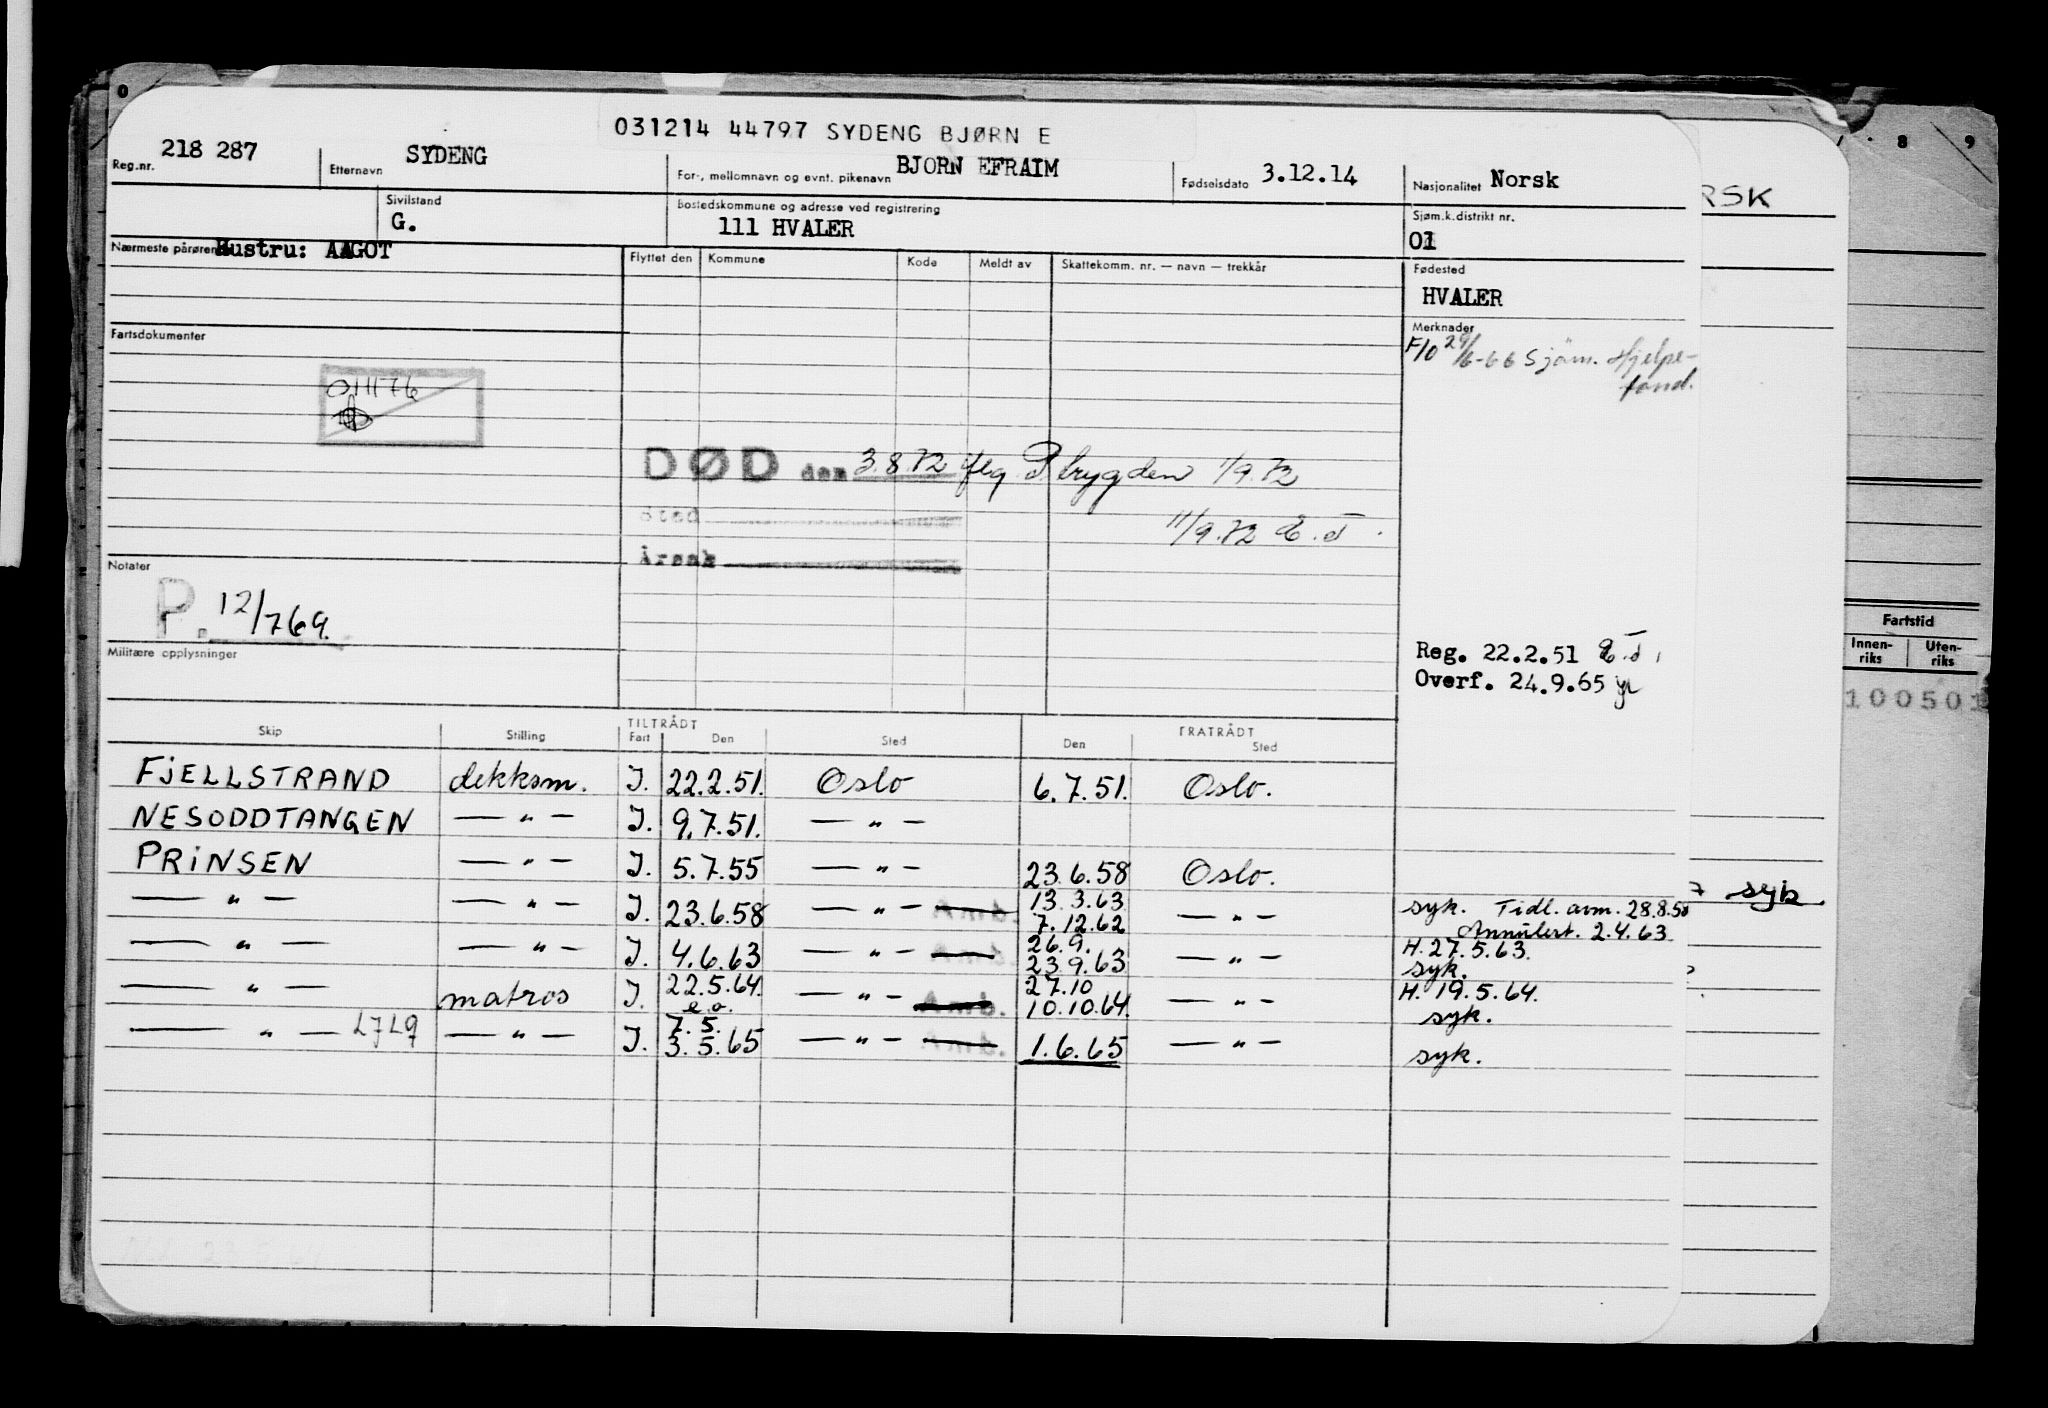 031214 44797 SYDENG BJØRN E
Reg.nr. 218 287 Etternavn SYDENG For-, mellomnavn og evnt. pikenavn BJORN EFRAIM Fødselsdato 3.12.14 Nasjonalitet Norsk
Sivilstand G. Bostedskommune og adresse ved registrering 111 HVALER Sjøm.k.distrikt nr. 01
RSK
Nærmeste pårøren Hustru: AAGOT
Flyttet den Kommune Kode Meldt av Skattekomm. nr. — navn — trekkår
Fødested
HVALER
Merknader
F/O 29/6-66 Sjøm. Hjelpe-
fond.
Fartsdokumenter
DØD den 3.8.72 flg. P.brygden 1/9.72
Sted
11/9.72
Årsak
Notater
P. 12/769.
Militære opplysninger
Reg. 22.2.51
Overf. 24.9.65
Fartstid
Innen-riks Uten-riks
100501
8 9
TILTRÅDT FRATRÅDT
Skip Stilling Fart Den Sted Den Sted
FJELLSTRAND dekksm. I. 22.2.51. Oslo 6.7.51. Oslo.
NESODDTANGEN — " — I. 9.7.51. — " —
PRINSEN — " — I. 5.7.55 — " — 23.6.58 Oslo.
— " — — " — I. 23.6.58 — " — Amb. 13.3.63 7.12.62 — " — syk. Tidl. avm. 28.8.58
Annulert. 2.4.63
— " — — " — I. 4.6.63 — " — 26.9. 23.9.63 — " — H. 27.5.63.
syk.
— " — matros I. 22.5.64. e.o. — " — Amb. 27.10 10.10.64. — " — H. 19.5.64.
syk.
— " — LJLQ — " — I. 7.5. 3.5.65 — " — 1.6.65 — " — syk.
syk.